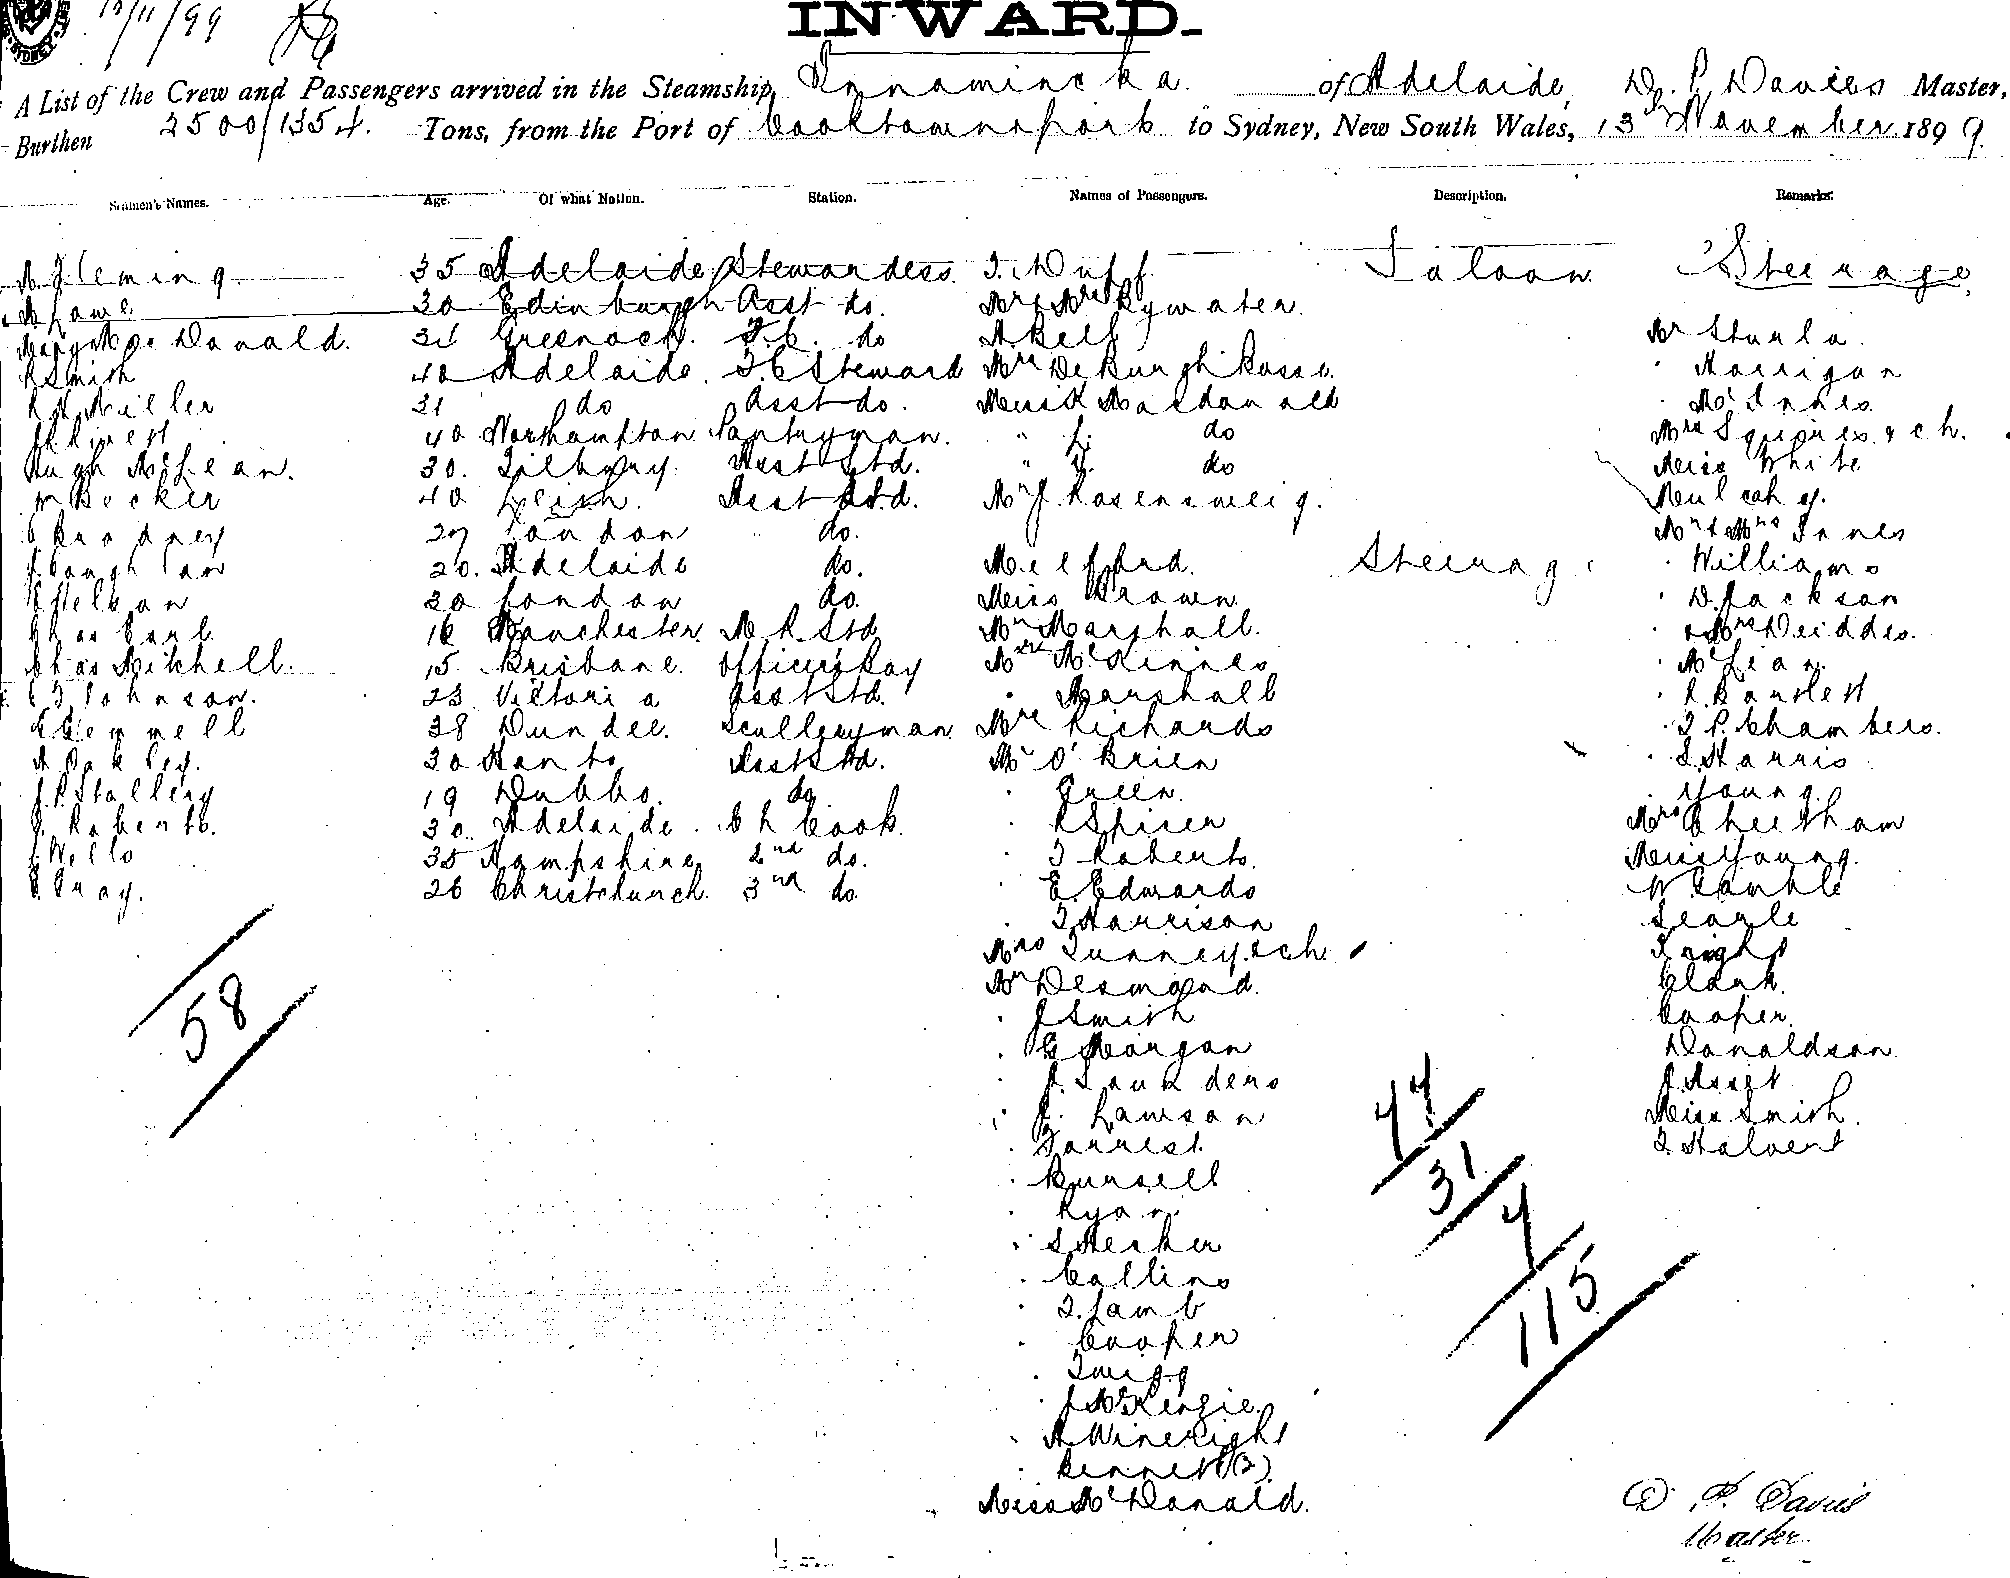 13/11/99
INWARD.
A List of the Crew and Passengers arrived in the Steamship, Innamincka of Adelaide, D. P. Davies Master,
Burthen 2500/1354. Tons, from the Port of Cooktown & ports to Sydney, New South Wales, 13th November 1899.
Seamen's Names. Age. Of what Nation. Station. Names of Passengers. Description. Remarks.
A Fleming 35 Adelaide Stewardess. T. Duff Saloon Steerage
A Lowe 30 Edinburgh Asst do. Mr & Mrs Bywater
Mary MacDonald. 31 Greenock. F.C. do A Bell Mr Sturla
R Smith 40 Adelaide. F.C Steward Mrs De Burgh Posse. " Harrigan
R H Miller 31 do Asst do. Miss K MacDonald " McInnes
40 Northampton Pantryman. " L. do Mrs Squires & ch.
Hugh McLean. 30. Tilbury. Asst Std. " J. do Miss White
W Becker 40 Leith. Asst Std. Mr J Rosensweig. Mulcahy.
27 London do. Mr & Mrs Innes
20. Adelaide do. Melford. Steerage " Williams
20 London do. Miss Brown " D. Jackson
Chas Carl 16 Manchester. M R Std Mr Marshall. " Mrs Deiddes.
Chas Mitchell. 15 Brisbane. Officers Boy Mr McKinnes " McLean.
C B Johnson. 23 Victoria Asst Std. " Marshall " R. Bartlett
Gemmell 38 Dundee. Sculleryman Mrs Richards " T P. Chambers.
A Oakley. 30 Hants Asst Std. Mr O'Brien " S. Harris
J. P. Stallery 19 Dubbo. do " Green. " Young.
J. Roberts. 30. Adelaide. Ch Cook. " R Spicer Mrs Cheetham
J Wells 35 Hampshire 2nd do. " T Roberts. Miss Young.
Gray. 26 Christchurch. 3rd do. " E. Edwards W Gamble
" T Harrison Searle
Mrs Tunney & ch. Wright
Mr Desmond. Clark.
58 " J Smith Cooper.
" G Morgan Donaldson
" J. Saunders J. Asset
" J. Lawson Miss Smith.
" Forrest. T. Halvert
" Bursell
" Ryan
" S Mesker
" Collins
" T. Lamb
" Cooper
" Twigg
" J McKenzie.
" A Wineright
" Bennett (2)
Miss McDonald.
44
31
4
115
D. P. Davies
Master.